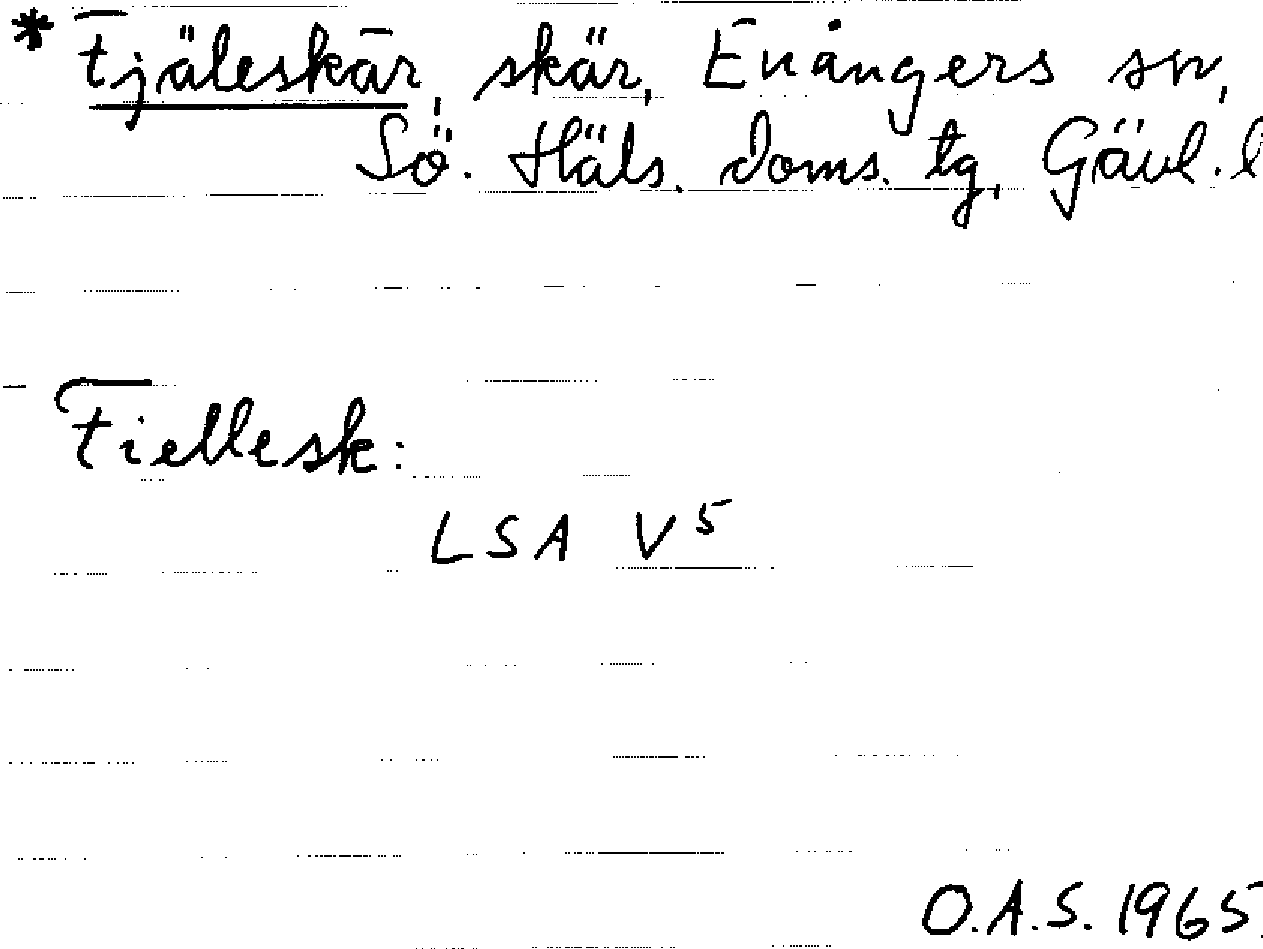 * Fjäleskär, skär, Enångers sn,
Sö. Häls. doms. tg, Gävl. l
Fiellesk:
LSA V⁵
O.A.S. 1965.